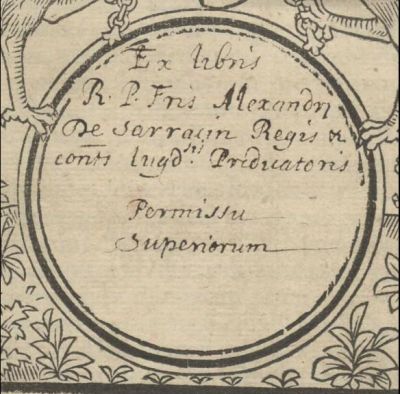 Ex libris
R. P. Fris Alexandri
De Sarracin Regis &
conts lugd.sis Predicatoris
Permissu
Superiorum